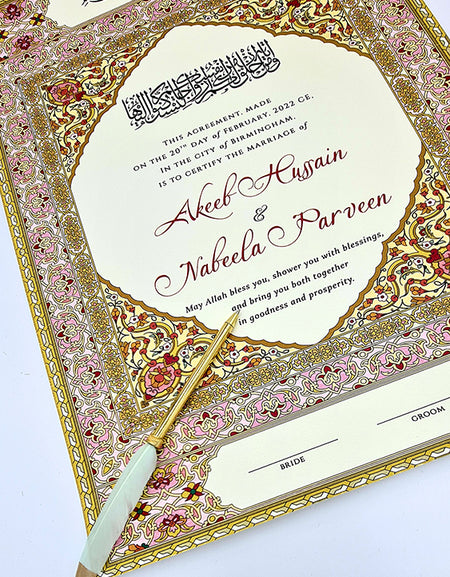 THIS AGREEMENT, MADE
ON THE 20TH DAY of FEBRUARY, 2022 CE.
IN THE CITY of BIRMINGHAM.
IS TO CERTIFY THE MARRIAGE of
Akeeb Hussain
&
Nabeela Parveen
May Allah bless you, shower you with blessings,
and bring you both together
in goodness and prosperity.
BRIDE
GROOM